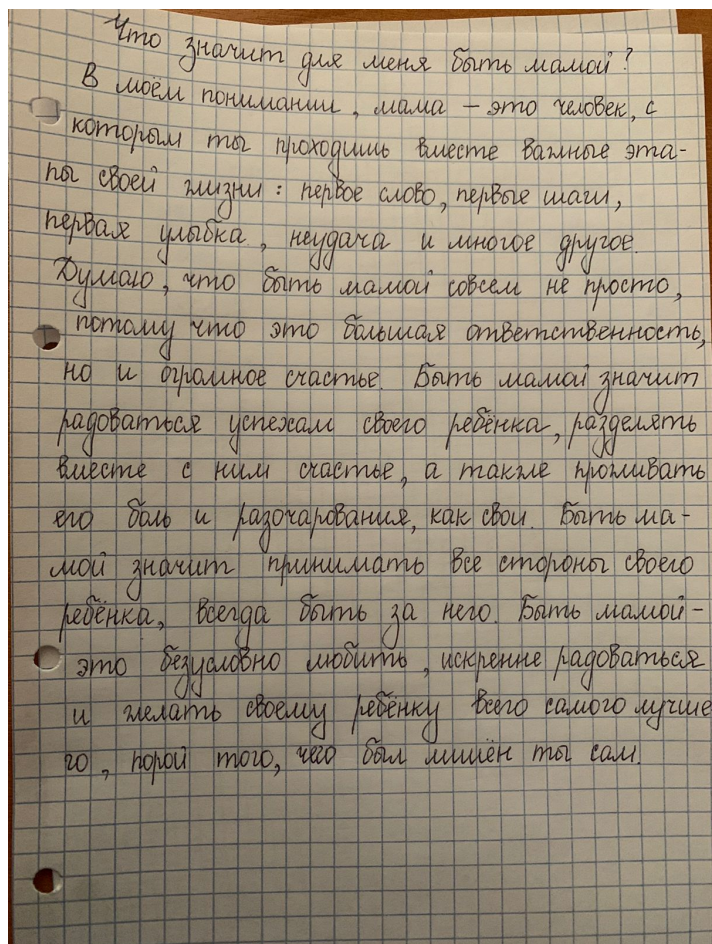 Что значит для меня быть мамой?
В моём понимании, мама – это человек, с
которым ты проходишь вместе важные эта-
пы своей жизни: первое слово, первые шаги,
первая улыбка, неудача и многое другое.
Думаю, что быть мамой совсем не просто,
потому что это большая ответственность,
но и огромное счастье. Быть мамой значит
радоваться успехам своего ребёнка, разделять
вместе с ним счастье, а также проживать
его боль и разочарования, как свои. Быть ма-
мой значит принимать все стороны своего
ребёнка, всегда быть за него. Быть мамой-
это безусловно любить, искренне радоваться
и желать своему ребёнку всего самого лучше
го, порой того, чего был лишён ты сам.